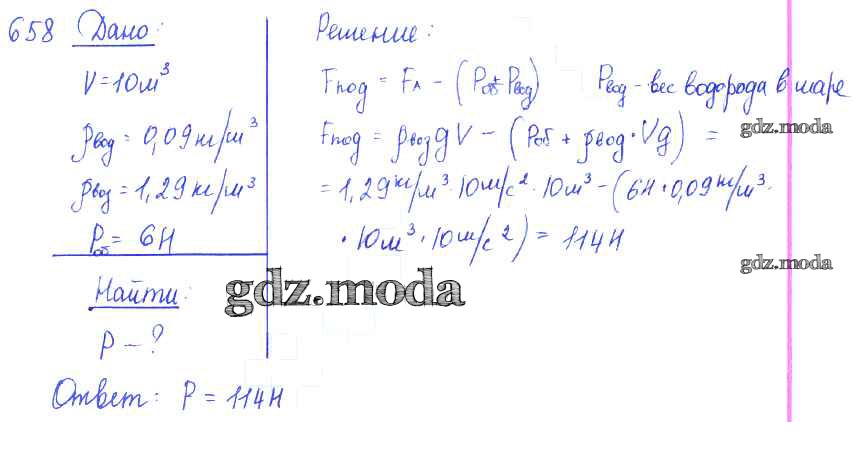 658 Дано:
V = 10м³
ρвод = 0,09кг/м³
ρвоз = 1,29кг/м³
Роб = 6Н
Найти:
Р – ?
Решение:
Fпод = FА – (Роб + Рвод) Рвод – вес водорода в шаре
Fпод = ρвозgV – (Роб + ρвод · Vg) =
= 1,29кг/м³ · 10м/с² · 10м³ – (6Н + 0,09кг/м³ ·
· 10м³ · 10м/с²) = 114Н
Ответ: Р = 114Н
gdz.moda
gdz.moda
gdz.moda